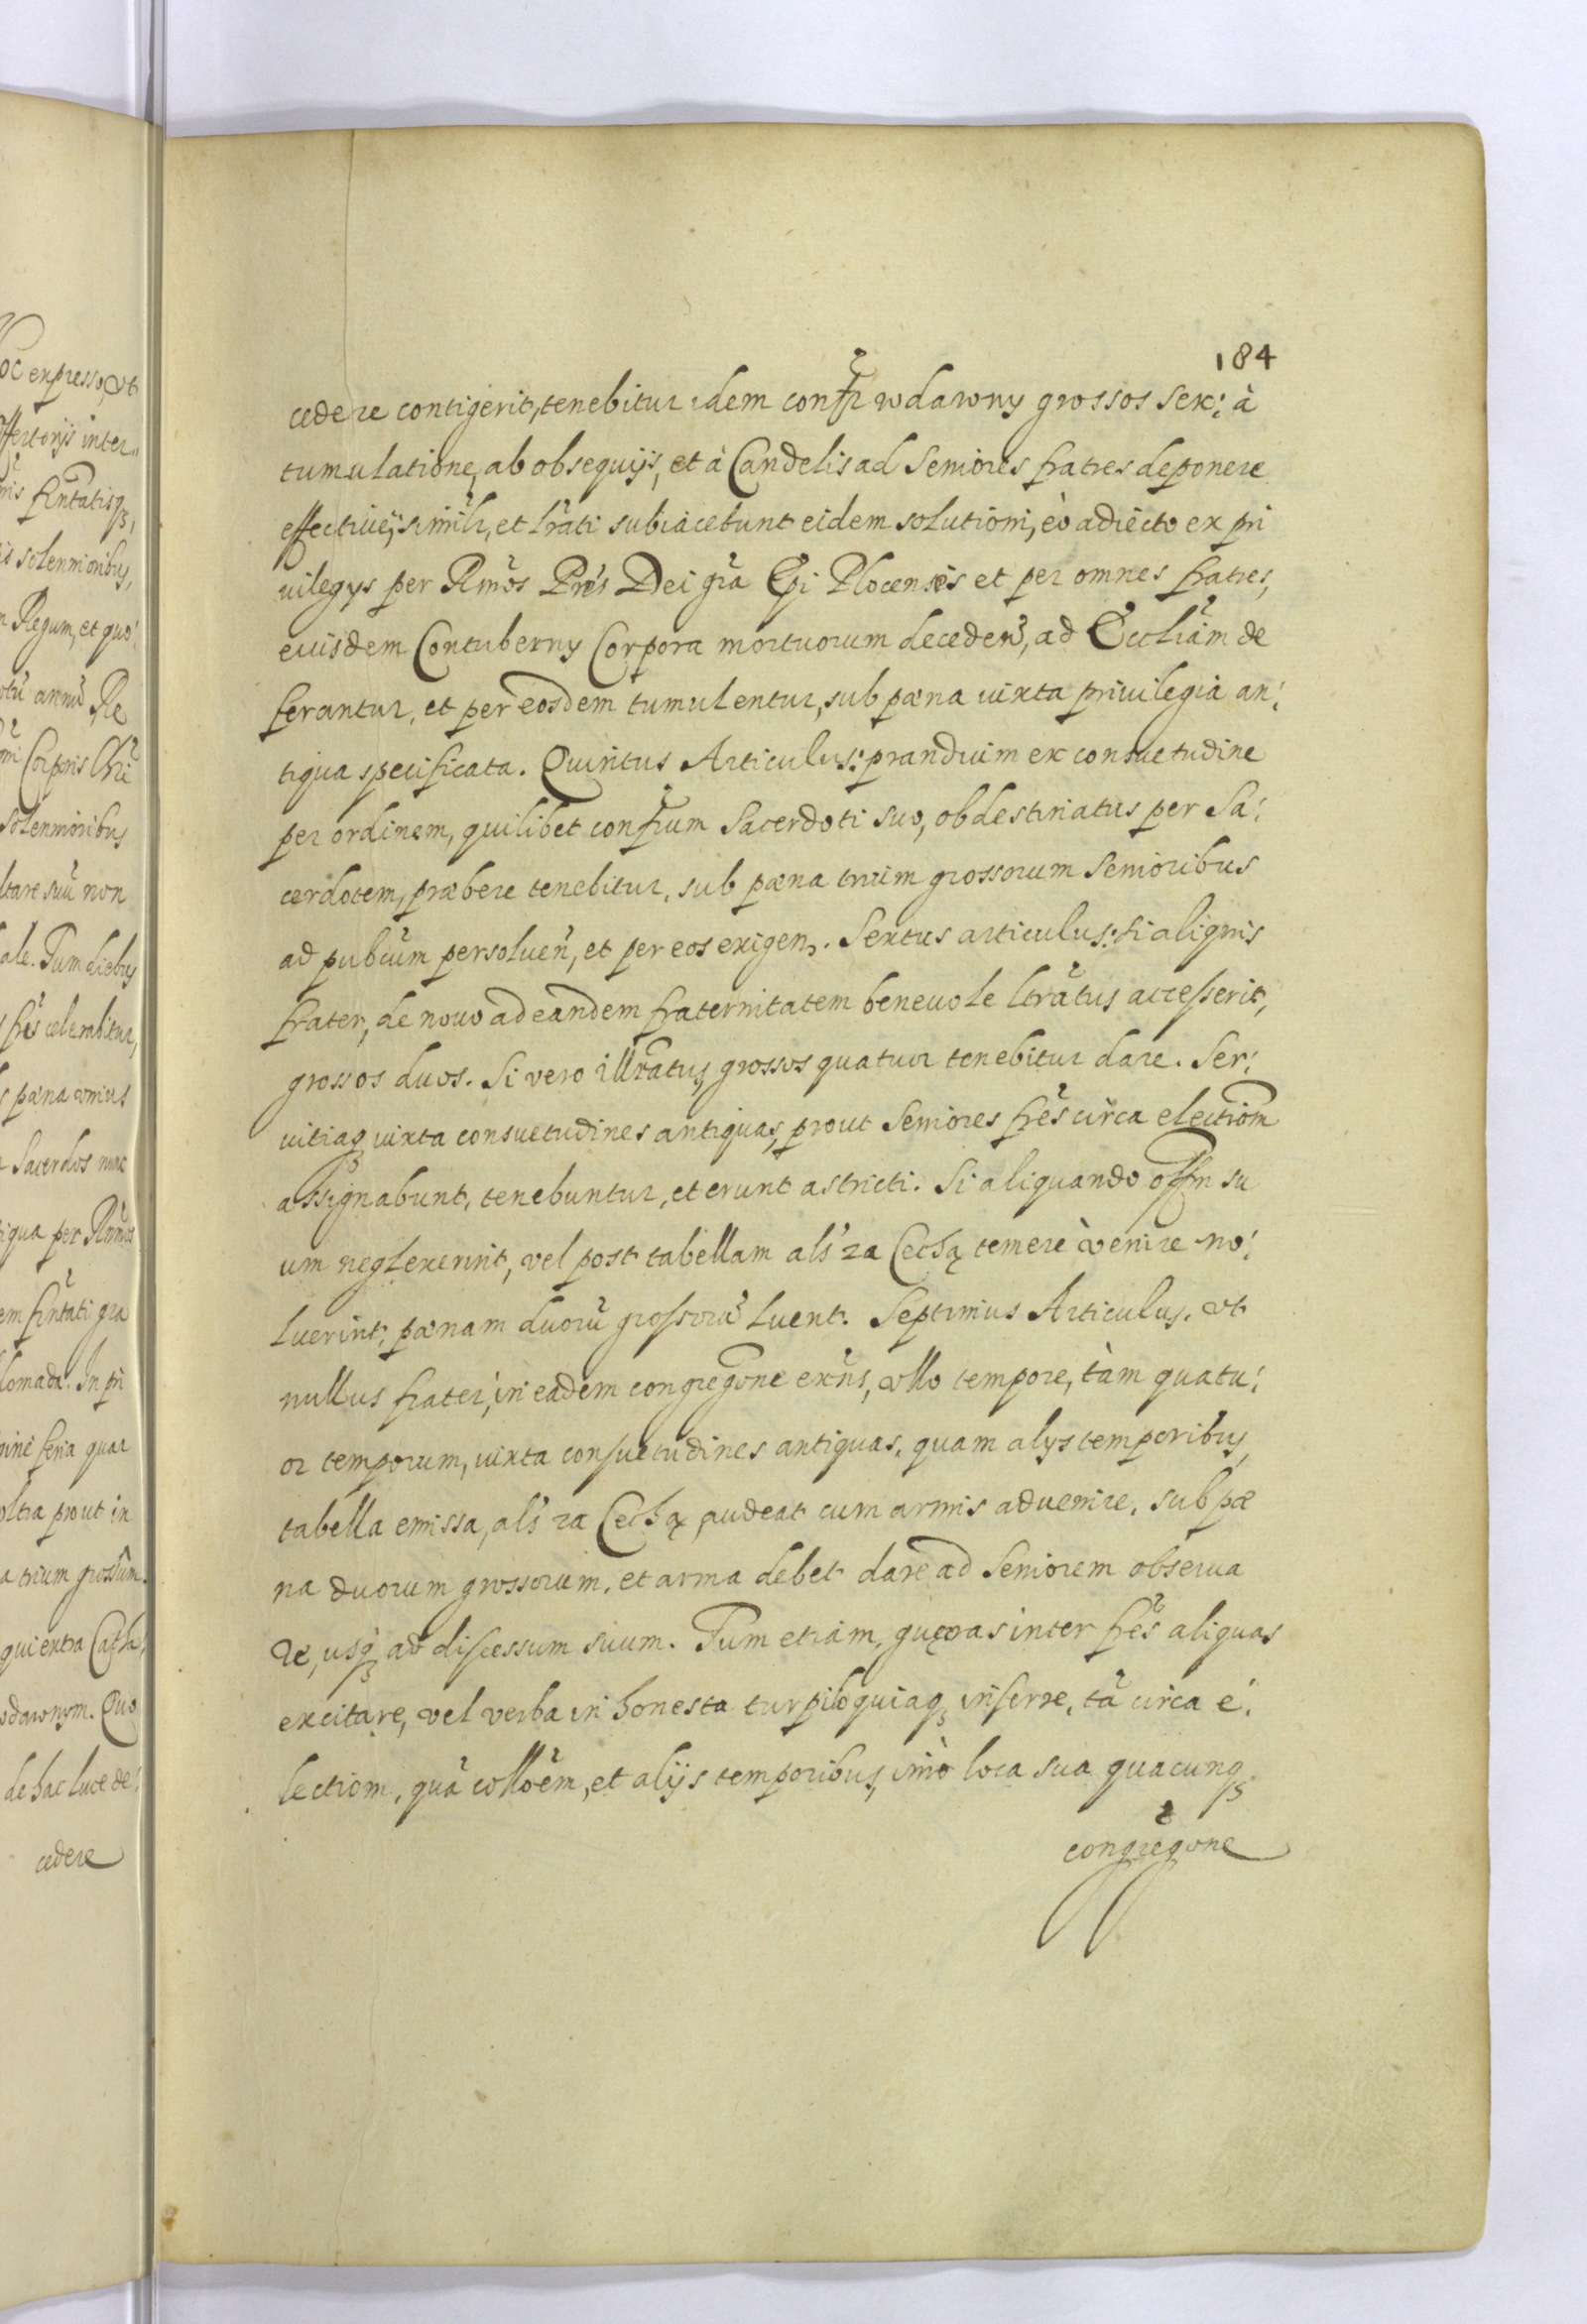 184
cedere contigerit, tenebitur idem confr̃ wdawny grossos sex: à
tumulatione, ab obsequijs, et à Candelis ad Seniores fratres deponere
effectiuè; simĩlr, et lr̃ati subiacebunt eidem solutioni, eò adiecto ex pri
uilegys per Rm̃os Pr̃es Dei gr̃a Ep̃i Plocenses et per omnes fratres,
eiusdem Contuberny Corpora mortuorum deceden̄, ad Eccłiam de
ferantur, et per eosdem tumulentur, sub pæna iuxta priuilegia an:
tiqua specificata. Quintus Articulus: prandium ex consuetudine
per ordinem, quilibet confr̃um Sacerdoti suo, ob destinatus per Sa:
cerdotem, præbere tenebitur, sub pæna trium grossorum Senioribus
ad pubcũm persoluen̄, et per eos exigen. Sextus articulus: si aliquis
frater, de nouo ad eandem fraternitatem beneuole ltr̃atus accesserit,
grossos duos. Si vero illtr̃atus, grossos quatuor tenebitur dare. Ser:
uitiaq́ iuxta consuetudines antiquas, prout Seniores fr̃es circa electiom̃
assignabunt, tenebuntur, et erunt astricti. Si aliquando offm̃ su
um neglexerint, vel post tabellam als̃ za Cechą temerè venire no:
luerint, pænam duorũ grossorũ luent. Septimus Articulus. vt
nullus frater, in eadem congregõne exñs, vllo tempore, tàm quatu:
or temporum, iuxta consuetudines antiquas, quam alys temporibus,
tabella emissa, als̃ za Cechą, audeat cum armis aduenire, sub pæ
na duorum grossorum, et arma debet dare ad Seniorem obserua
re, usq́ ad discessum suum. Tum etiam, guęras inter fr̃es aliquas
excitare, vel verba inhonesta turpiloquiaq́ inserre, tã circa e:
lectiom, quã collõem, et alijs temporibus, imò loca sua quacunq́
congregõne